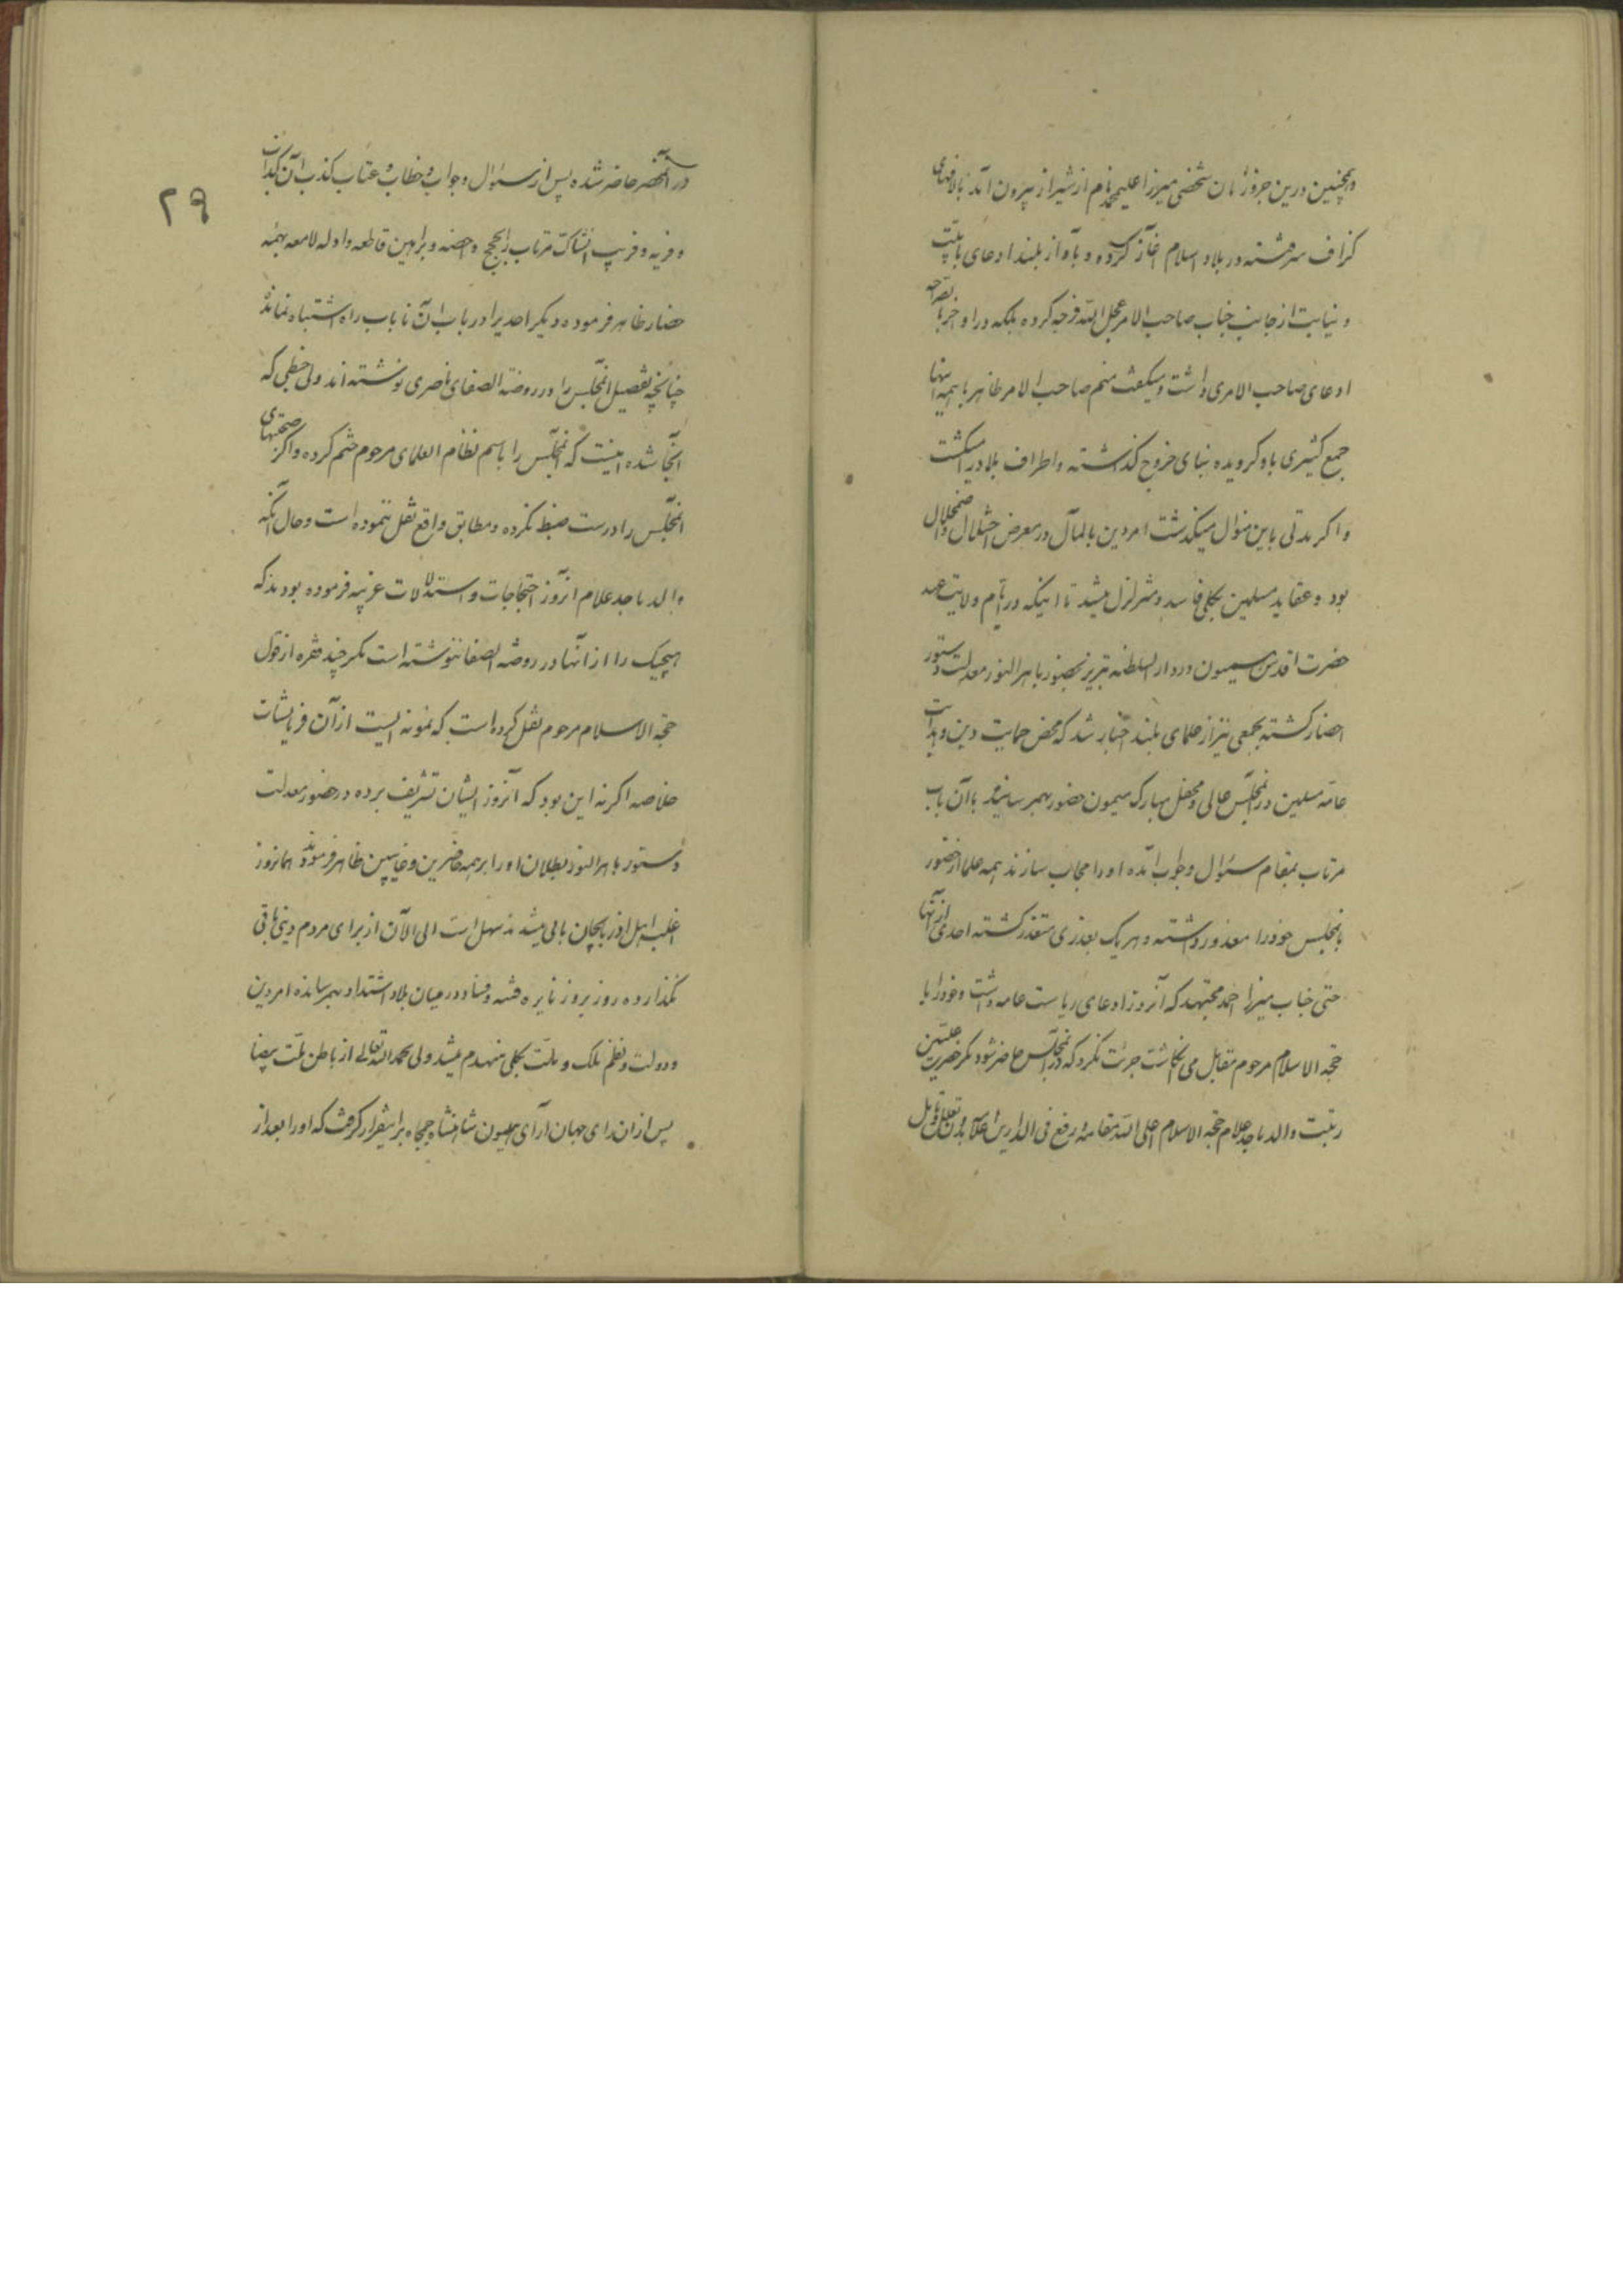 و همچنین درین جزو زمان شخصی میرزا علیمحمد نام از شیراز بیرون آمد بالافهای
گزاف سررشته در بلاد اسلام آغاز کرده و بآواز بلند ادعای بابیت
و نیابت از جانب جناب صاحب الامر عجل الله فرجه کرده بلکه در اواخر بالصراحه
ادعای صاحب الامری داشت و میگفت منم صاحب الامر ظاهر با همه اینها
جمع کثیری باو گرویده بنای خروج گذاشته و اطراف بلاد را میگشت
و اگر مدتی باین منوال میگذشت امر دین بالمآل در معرض اختلال و اضمحلال
بود و عقاید مسلمین بکلی فاسد و متزلزل میشد تا اینکه در ایام ولایت عهد
حضرت اقدس میمون در دار السلطنه تبریز بحضور باهر النور معدلت دستور
احضار گشته بجمعی نیز از علمای بلند اخبار شد که محض حمایت دین و هدایت
عامه مسلمین در آنمجلس عالی و محفل مبارک میمون حضور بهمرسانیده با آن باب
مرتاب بمقام سئوال و جواب آمده او را مجاب سازند همه علما از حضور
بآنمجلس خود را معذور داشته و هر یک بعذری متعذر گشته احدی از آنها
حتی جناب میرزا احمد مجتهد که آنروز ادعای ریاست عامه داشت و خود را با
حجه الاسلام مرحوم مقابل می انگاشت جرئت نکرد که در آنمجلس حاضر شود مگر حضرت علیین
رتبت والد ماجد علام حجه الاسلام اعلی الله مقامه و رفع فی الدارین اعلامه بدون تعلل و تأمل
در آنمحضر حاضر شده پس از سئوال و جواب و خطاب و عتاب کذب آن کذاب
و فریه و فریب آنشاک مرتاب را بحجج واضحه و براهین قاطعه و ادله لامعه بهمه
حضار ظاهر فرموده دیگر احدیرا در باب آن ناباب راه اشتباه نماند
چنانچه تفصیل آنمجلس را در روضة الصفای ناصری نوشته اند ولی خبطی که
آنجا شده اینست که آنمجلس را باسم نظام العلمای مرحوم ختم کرده و اکثر صحبتهای
آنمجلس را درست ضبط نکرده و مطابق واقع نقل ننموده است و حال آنکه
والد ماجد علام آنروز احتجاجات و استدلالات غریبه فرموده بودند که
هیچیک را از آنها در روضة الصفا ننوشته است مگر چند فقره از قول
حجه الاسلام مرحوم نقل کرده است که نمونه ایست از آن فرمایشات
خلاصه اگر نه این بود که آنروز ایشان تشریف برده در حضور معدلت
دستور باهر النور بطلان او را بر همه حاضرین و غایبین ظاهر فرمودند همانروز
اغلب اهل آذربایجان بابی میشدند سهل است الی الآن از برای مردم دینی باقی
نگذارده روز بروز نایره فتنه و فساد در میان بلاد اشتداد بهمرسانده امر دین
و دولت و نظم ملک و ملت بکلی منهدم میشد ولی بحمد الله تعالی از باطن ملت بیضا
پس از آن رای جهان آرای همیون شاهنشاه جمجاه بر اینقرار گرفت که او را بعد از
۲۹